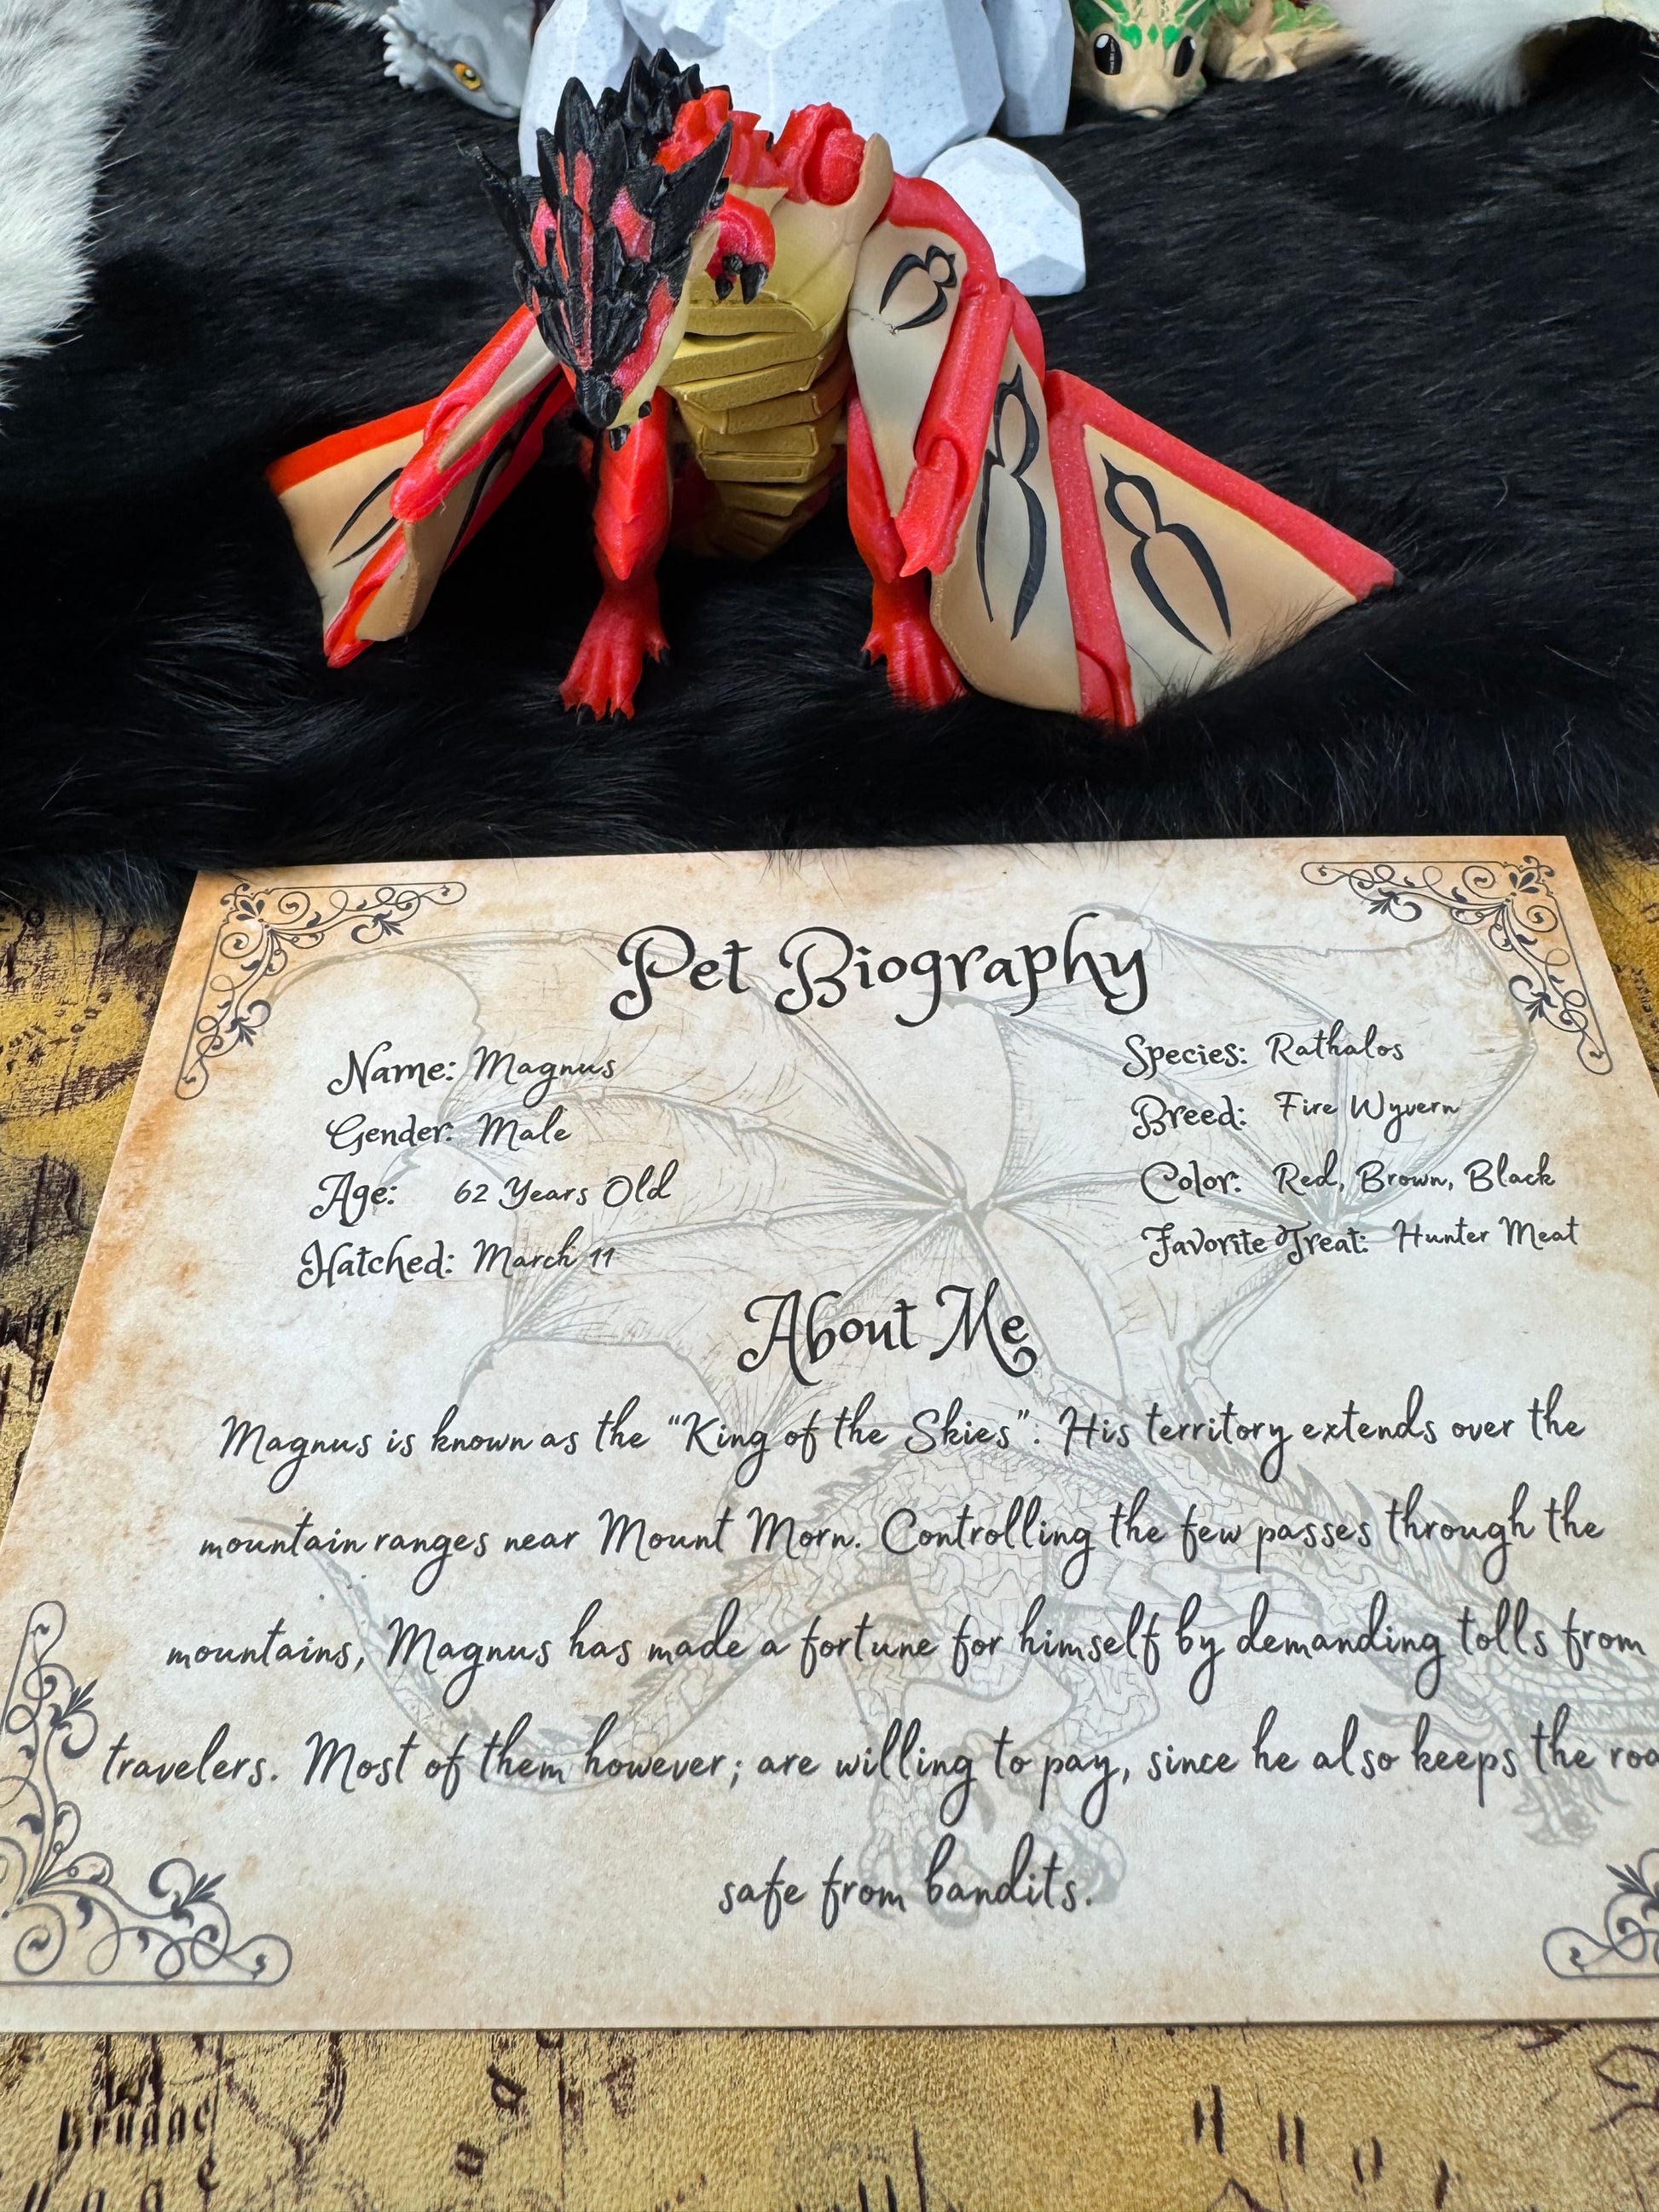 Pet Biography
Name: Magnus
Species: Rathalos
Gender: Male
Breed: Fire Wyvern
Age: 62 Years Old
Color: Red, Brown, Black
Hatched: March 11
Favorite Treat: Hunter Meat
About Me
Magnus is known as the "King of the Skies". His territory extends over the
mountain ranges near Mount Morn. Controlling the few passes through the
mountains, Magnus has made a fortune for himself by demanding tolls from
travelers. Most of them however; are willing to pay, since he also keeps the
safe from bandits.